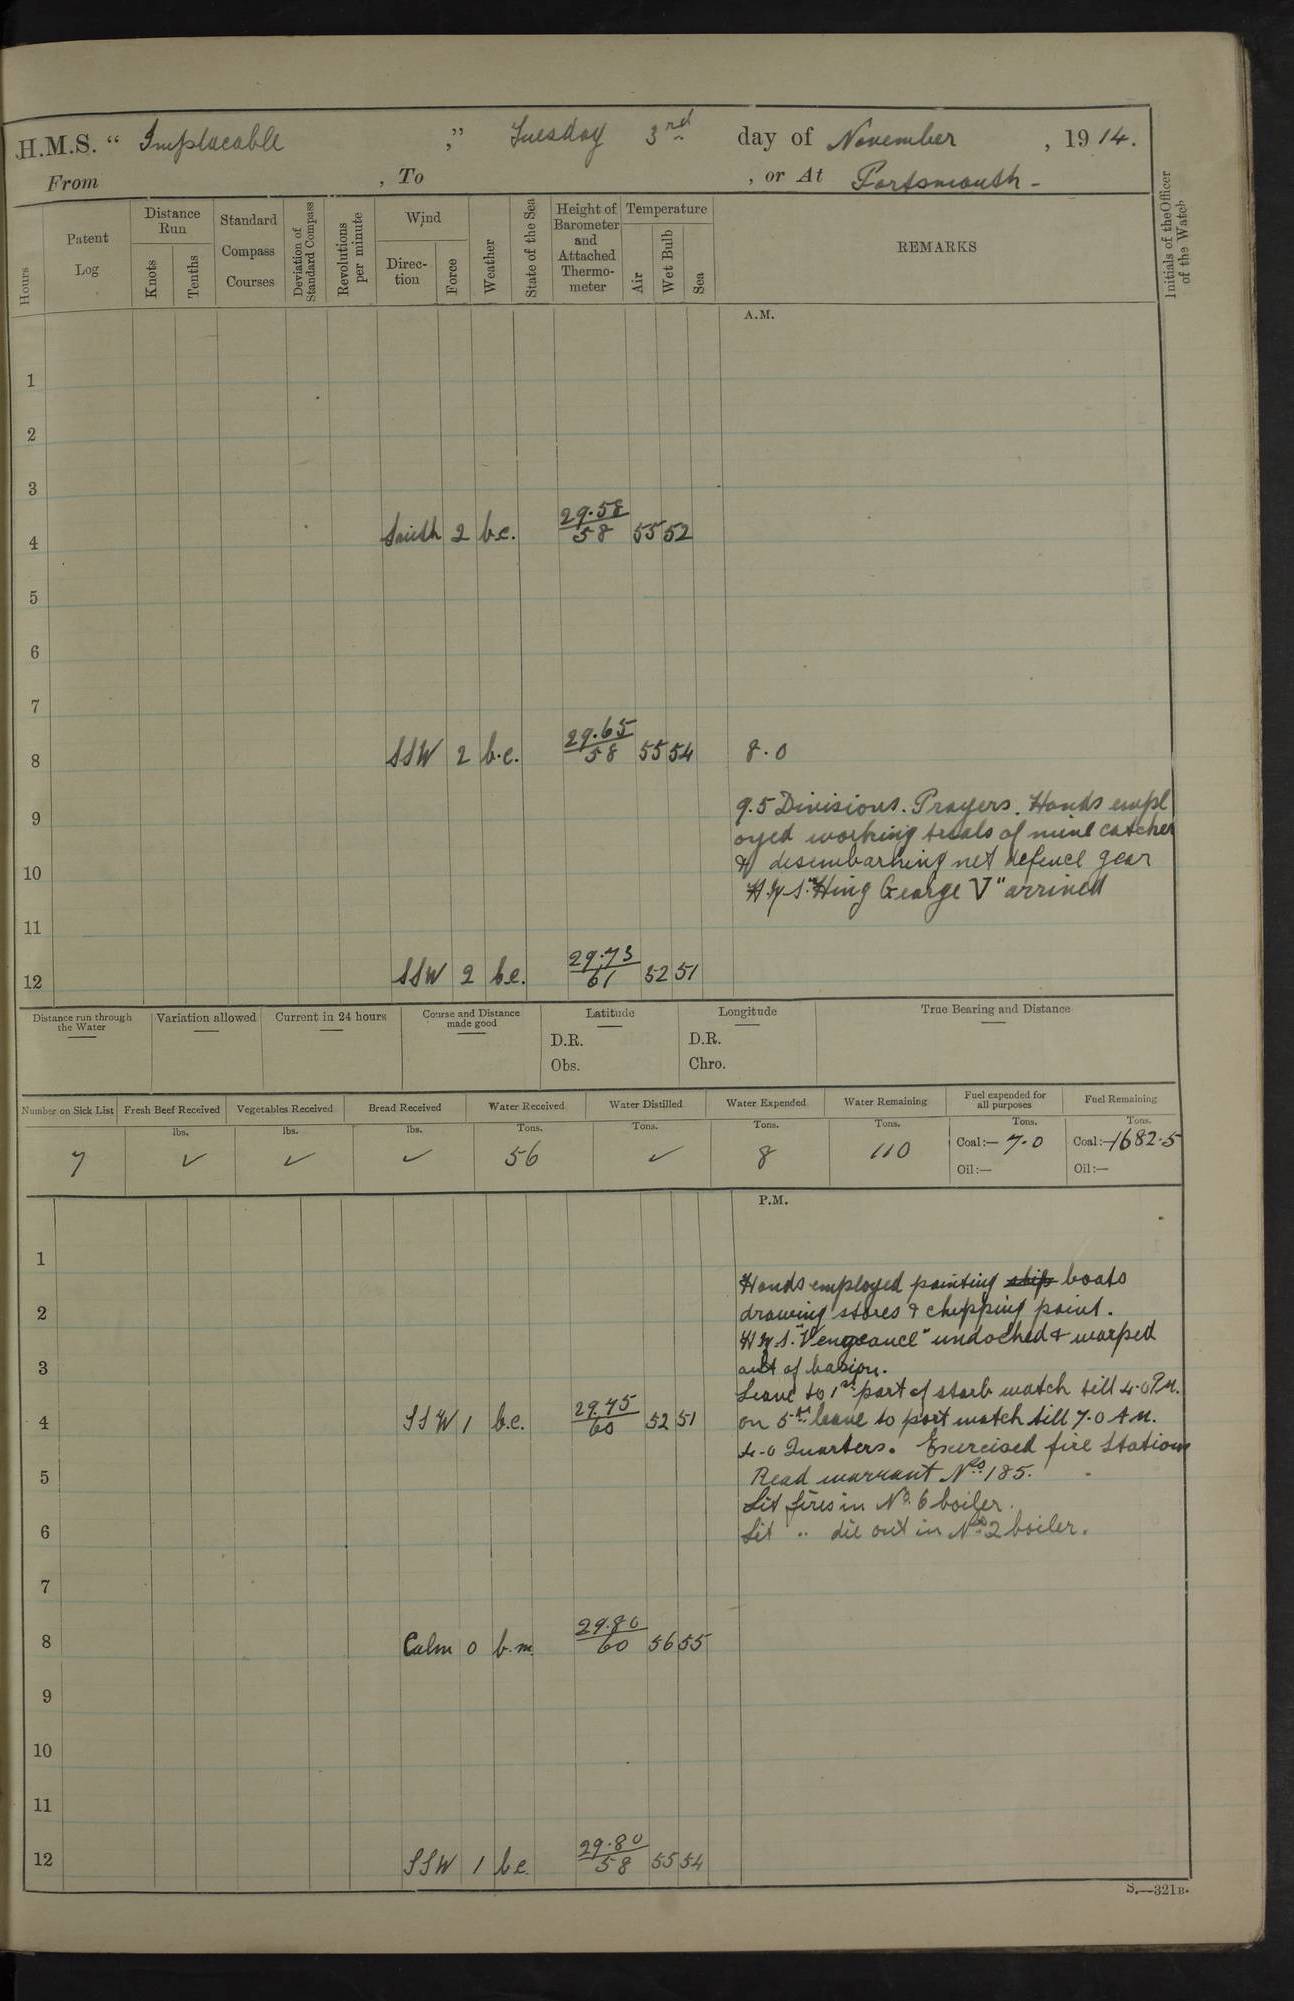 H.M.S. “ Implacable ,” Tuesday 3rd day of November , 19 14.
From , To , or At Portsmouth -
Hours
Patent Log
Distance Run
Knots
Tenths
Standard Compass Courses
Deviation of Standard Compass
Revolutions per minute
Wind
Direc-tion
Force
Weather
State of the Sea
Height of Barometer and Attached Thermo-meter
Temperature
Air
Wet Bulb
Sea
REMARKS
Initials of the Officer of the Watch
A.M.
1
2
3
4 South 2 b.c. 29.58/58 55 52
5
6
7
8 SSW 2 b.c. 29.65/58 55 54 8.0
9 9.5 Divisions. Prayers. Hands empl
oyed working trials of mine catcher
10 & disembarking net defence gear
H.M.S. "King George V" arrived
11
12 SSW 2 b.c. 29.73/61 52 51
Distance run through the Water
Variation allowed
Current in 24 hours
Course and Distance made good
Latitude
D.R.
Obs.
Longitude
D.R.
Chro.
True Bearing and Distance
Number on Sick List Fresh Beef Received Vegetables Received Bread Received Water Received Water Distilled Water Expended Water Remaining Fuel expended for all purposes Fuel Remaining
lbs. lbs. lbs. Tons. Tons. Tons. Tons. Tons. Tons.
7 ✓ ✓ ✓ 56 ✓ 8 110 Coal:— 7.0 Coal:— 1682.5
Oil:— Oil:—
P.M.
1
Hands employed painting ship boats
2 drawing stores & chipping paint.
H.M.S. "Vengeance" undocked & warped
3 out of basin.
Leave to 1st part of starb watch till 4.0 P.M.
4 SSW 1 b.c. 29.75/60 52 51 on 5th leave to port watch till 7.0 A.M.
4.0 Quarters. Exercised fire stations
5 Read warrant No. 185.
Lit fires in No. 6 boiler.
6 Let " die out in No. 2 boiler.
7
8 Calm 0 b.m. 29.80/60 56 55
9
10
11
12 SSW 1 b.c. 29.80/58 55 54
S.—321B.